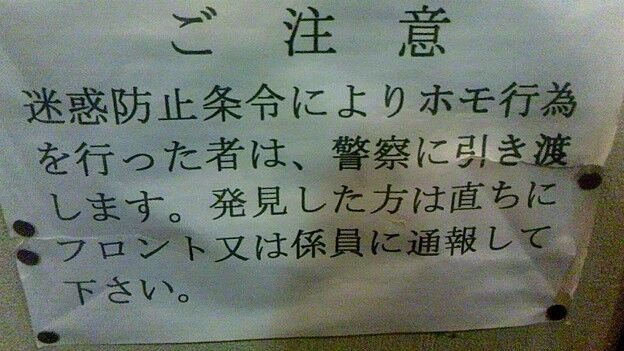 ご注意
迷惑防止条令によりホモ行為
を行った者は、警察に引き渡
します。発見した方は直ちに
フロント又は係員に通報して
下さい。